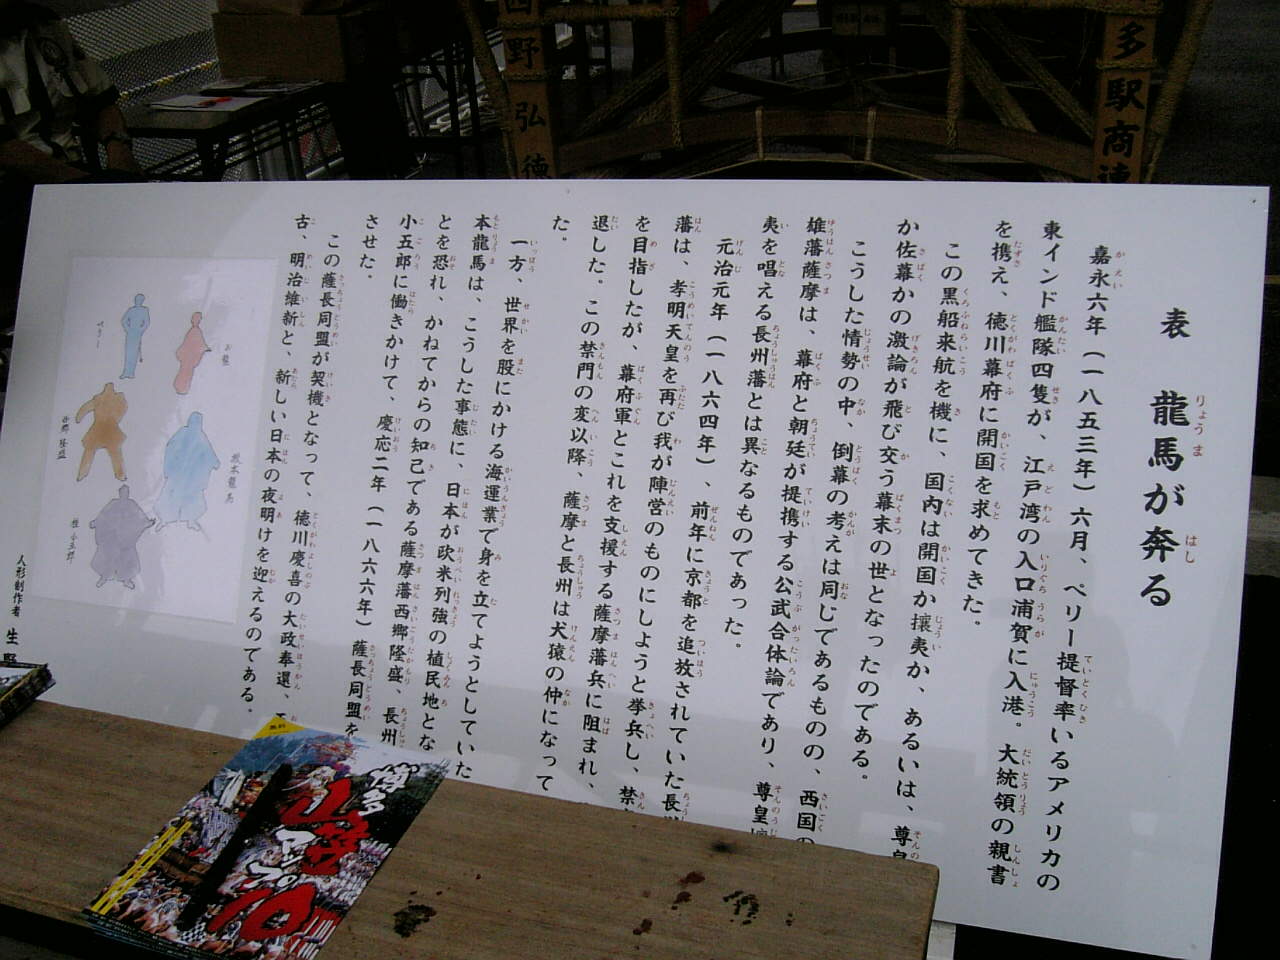 表 龍馬が奔る
嘉永六年（一八五三年）六月、ペリー提督率いるアメリカの
東インド艦隊四隻が、江戸湾の入口浦賀に入港。大統領の親書
を携え、徳川幕府に開国を求めてきた。
この黒船来航を機に、国内は開国か攘夷か、あるいは、尊皇
か佐幕かの激論が飛び交う幕末の世となったのである。
こうした情勢の中、倒幕の考えは同じであるものの、西国の
雄藩薩摩は、幕府と朝廷が提携する公武合体論であり、尊皇攘
夷を唱える長州藩とは異なるものであった。
元治元年（一八六四年）、前年に京都を追放されていた長州
藩は、孝明天皇を再び我が陣営のものにしようと挙兵し、禁
を目指したが、幕府軍とこれを支援する薩摩藩兵に阻まれ、
退した。この禁門の変以降、薩摩と長州は犬猿の仲になって
た。
一方、世界を股にかける海運業で身を立てようとしていた
本龍馬は、こうした事態に、日本が欧米列強の植民地とな
とを恐れ、かねてからの知己である薩摩藩西郷隆盛、長州
小五郎に働きかけて、慶応二年（一八六六年）薩長同盟を
させた。
この薩長同盟が契機となって、徳川慶喜の大政奉還、
古、明治維新と、新しい日本の夜明けを迎えるのである。
お龍
ペリー
坂本龍馬
西郷隆盛
桂小五郎
人形制作者 生野
西野弘徳
多駅商連
博多
山笠
マップの
10